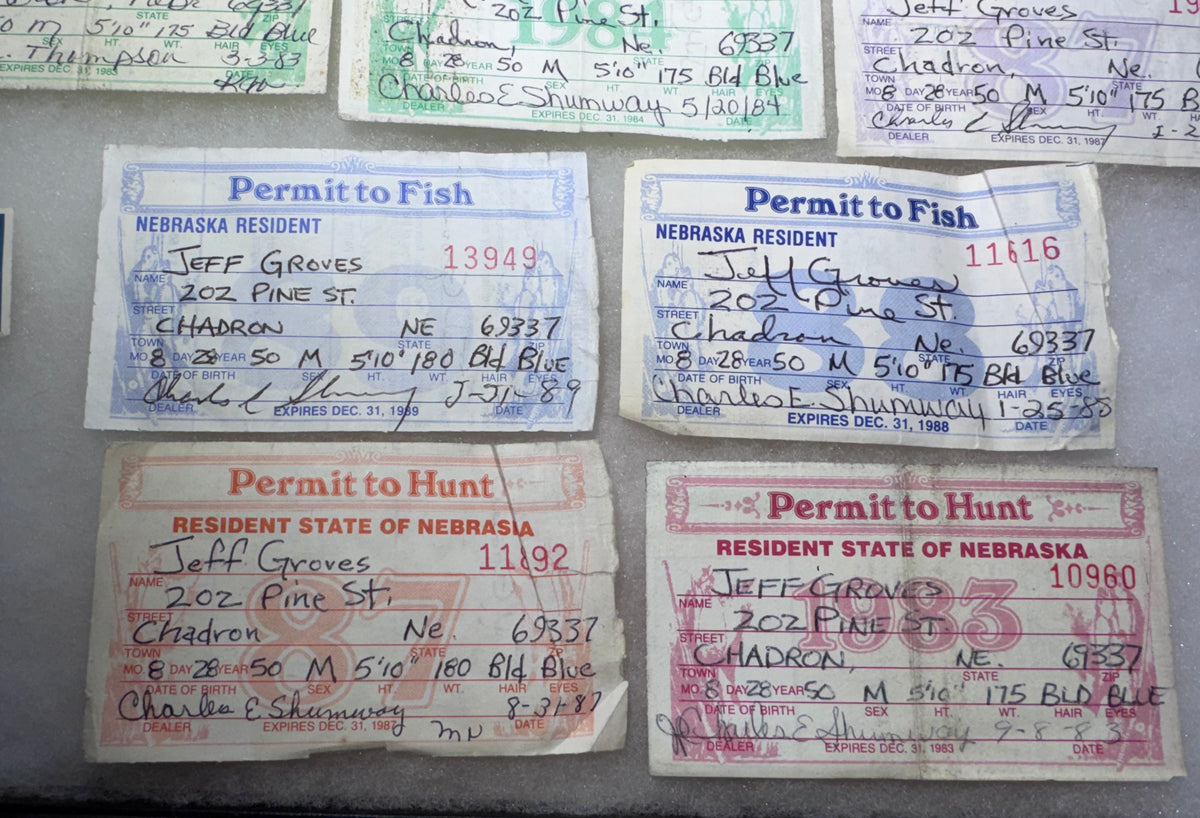 69337
STATE ZIP
M 5'10" 175 Bld Blue
HT. WT. HAIR EYES
Thompson 3-3-83
EXPIRES DEC. 31, 1983 DATE
202 Pine St.
1984
Chadron, Ne. 69337
MO 8 DAY 28 YEAR 50 M 5'10" 175 Bld Blue
DATE OF BIRTH SEX HT. WT. HAIR EYES
Charles E Shumway 5/20/84
DEALER EXPIRES DEC. 31, 1984 DATE
Jeff Groves
NAME
202 Pine St.
STREET
87
Chadron, Ne.
TOWN STATE
MO 8 DAY 28 YEAR 50 M 5'10" 175
DATE OF BIRTH SEX HT. WT.
Charles E Shumway
DEALER EXPIRES DEC. 31, 1987
Permit to Fish
NEBRASKA RESIDENT
JEFF GROVES 13949
NAME
202 PINE ST.
STREET
CHADRON NE 69337
TOWN STATE ZIP
MO 8 DAY 28 YEAR 50 M 5'10" 180 Bld BLUE
DATE OF BIRTH SEX HT. WT. HAIR EYES
Charles E Shumway
DEALER EXPIRES DEC. 31, 1989 DATE
Permit to Fish
NEBRASKA RESIDENT
11616
Jeff Groves
NAME
202 Pine St.
STREET
88
Chadron Ne. 69337
TOWN STATE ZIP
MO 8 DAY 28 YEAR 50 M 5'10" 175 Bld Blue
DATE OF BIRTH SEX HT. WT. HAIR EYES
Charles E. Shumway 1-25-88
DEALER EXPIRES DEC. 31, 1988 DATE
Permit to Hunt
RESIDENT STATE OF NEBRASKA
Jeff Groves 11892
NAME
202 Pine St.
STREET
87
Chadron Ne. 69337
TOWN STATE ZIP
MO. 8 DAY 28 YEAR 50 M 5'10" 180 Bld Blue
DATE OF BIRTH SEX HT. WT. HAIR EYES
Charles E Shumway 8-31-87
DEALER EXPIRES DEC. 31, 1987 DATE
Permit to Hunt
RESIDENT STATE OF NEBRASKA
10960
JEFF GROVES
NAME
1983
202 PINE ST.
STREET
CHADRON, NE. 69337
TOWN STATE ZIP
MO. 8 DAY 28 YEAR 50 M 5'10" 175 BLD BLUE
DATE OF BIRTH SEX HT. WT. HAIR EYES
Charles E Shumway 9-8-83
DEALER EXPIRES DEC. 31, 1983 DATE